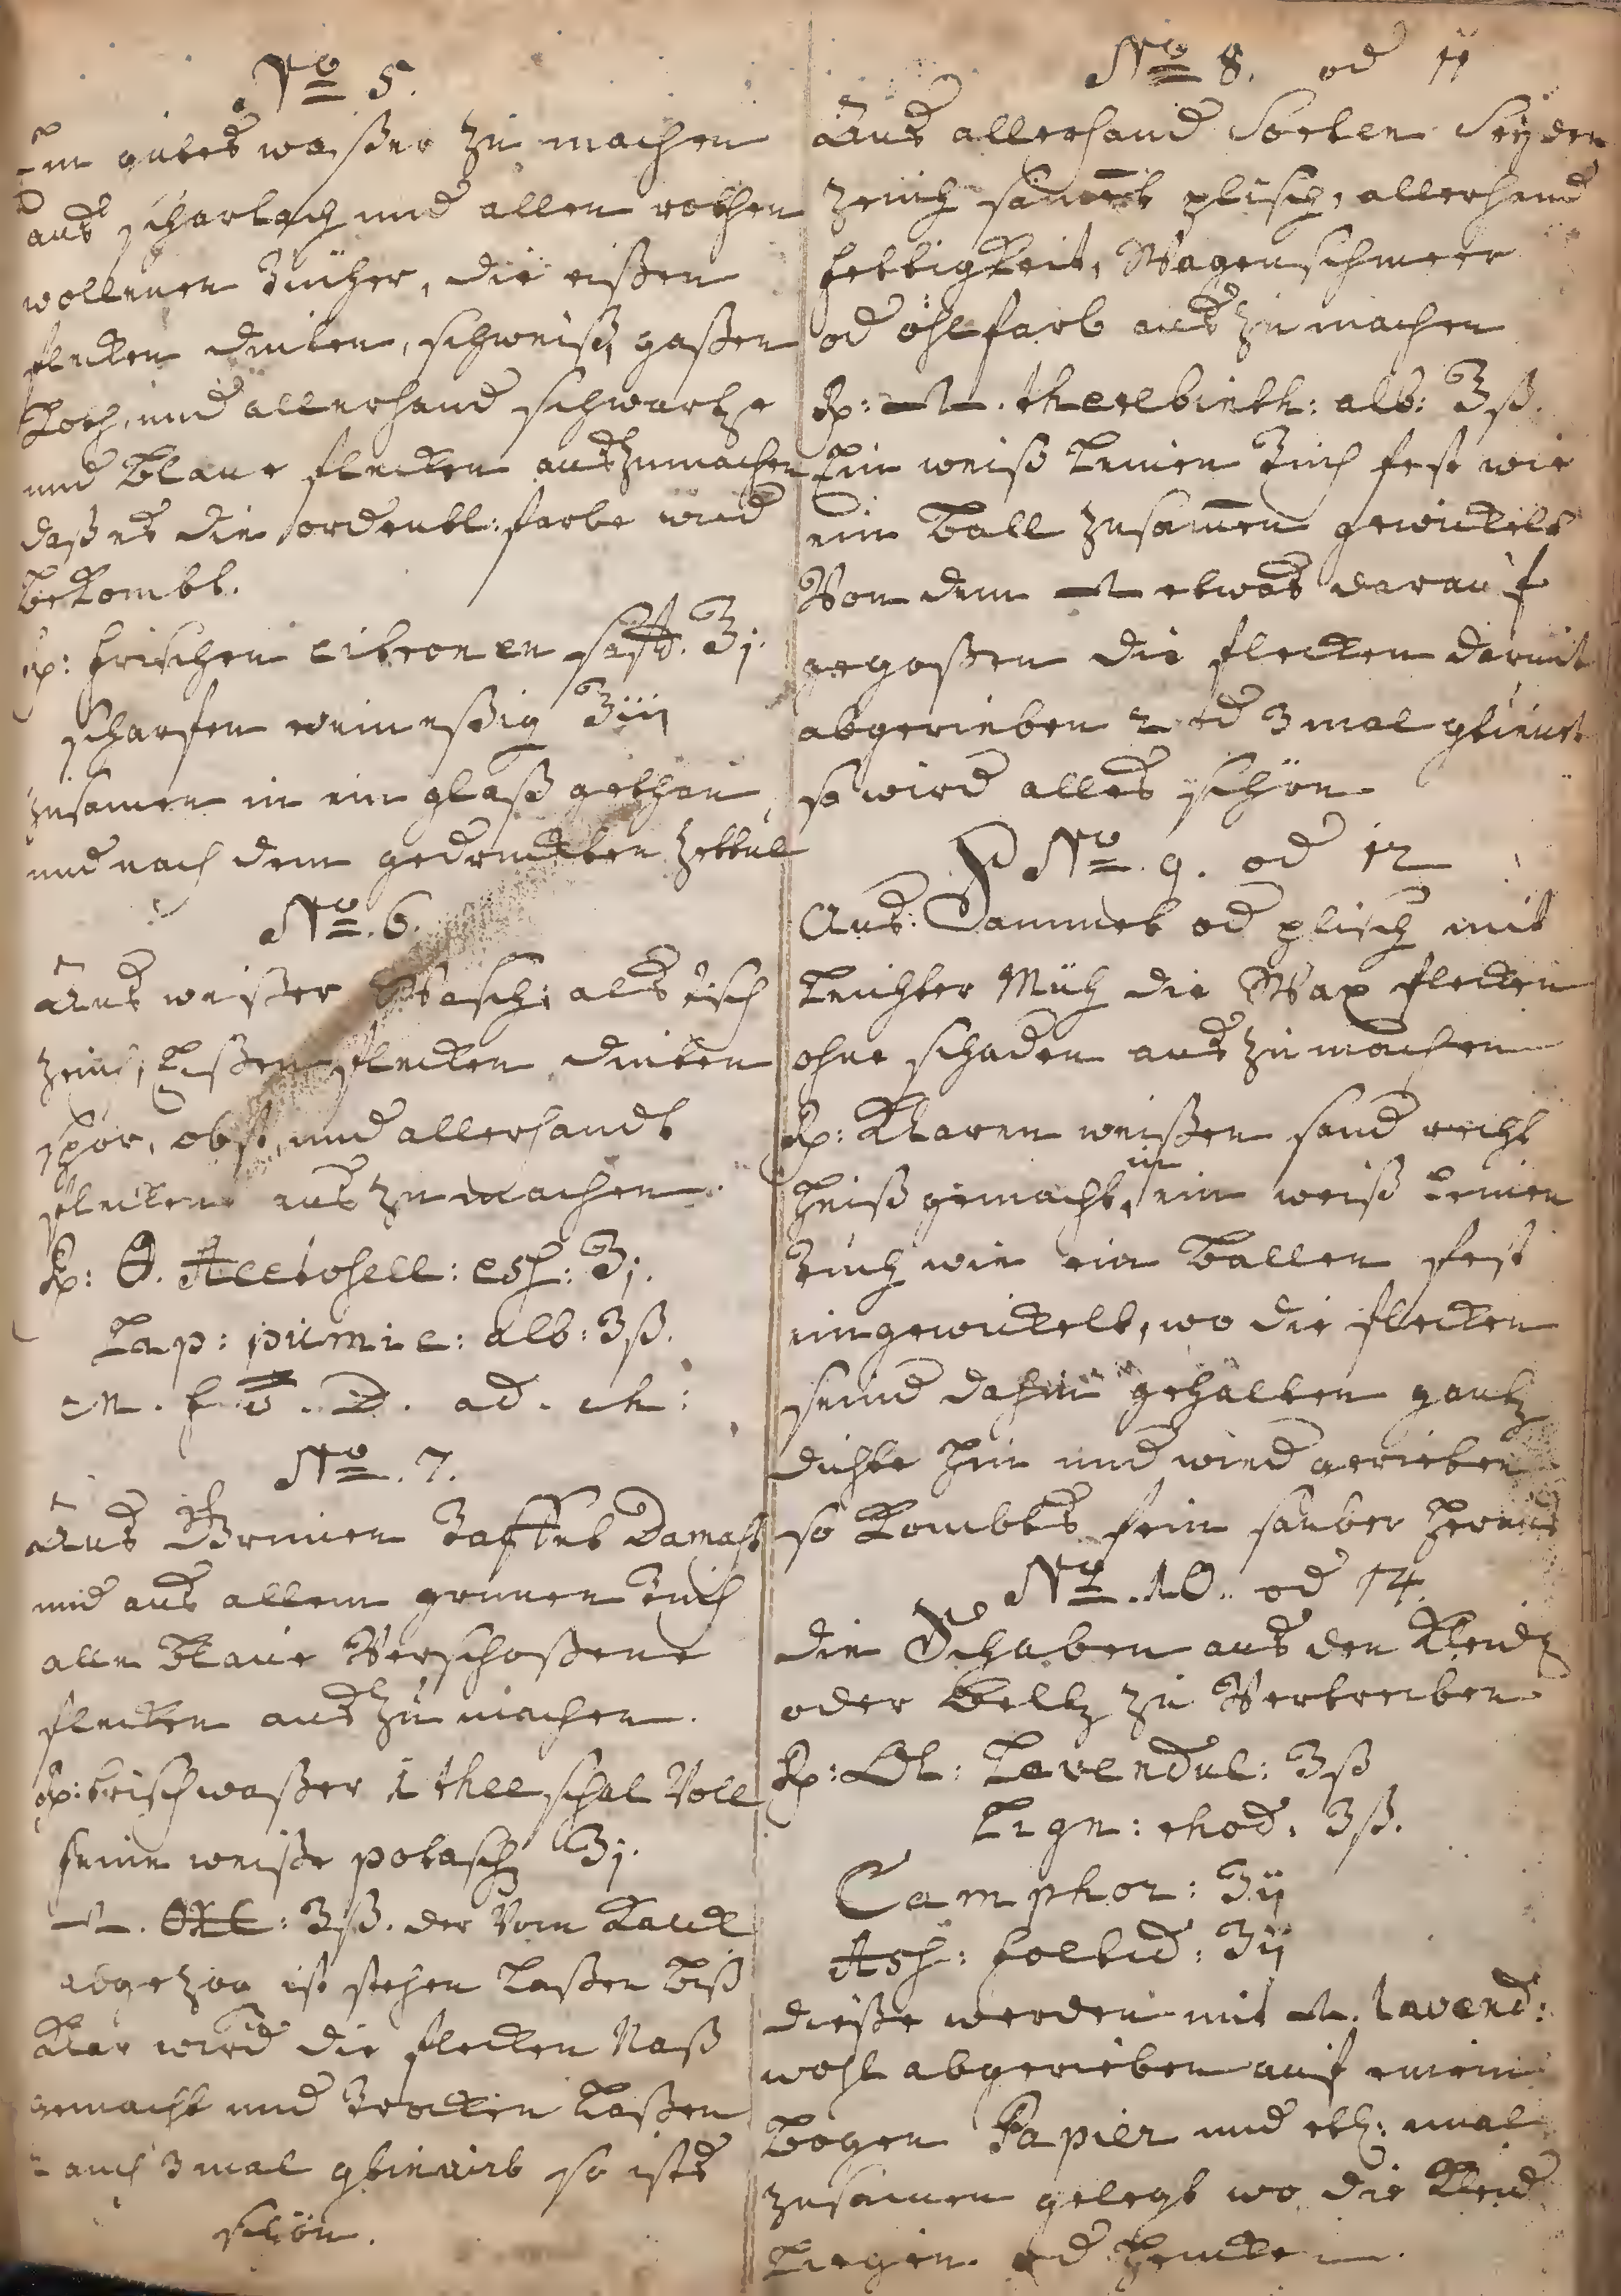 No 5.
Ein gutes waßer zu machen
aus scharlach und allen rothen
wollenen Tücher, die eißen
flecken dinten, schweiß, gaßen
Koth, und allerhand schwartze
und blaue flecken auszumachen
daß es die ordentl: farbe wied
bekombt.
Rp: frischen citronen safft. ℥j.
scharfen weineßig ℥iij
zusamen in ein glaß gethan,
und nach dem gedruckten Zettul
No. 6.
Aus weißer Wasch, als tisch
zeug, Eißen flecken dinten
spor, obst, und allerhandt
flecken aus zu machen.
Rp: Acetosell: ℥j.
Lap: pumic: alb: ℥ß.
M. f. D. ad.
No. 7.
Aus Grunen Taffet Damast
und aus allem grunen Tuch
alle blaue Verschoßene
flecken aus zu machen.
Rp: frisch waßer 1 thee schal Voll
feine weiße potasch ℥j.
℥ß. der Vom Kalck
abgezog ist stehen laßen biß
Klar wird die flecken Naß
gemacht und Trocken laßen
auch 3 mal so ists
schön.
No 8. od 11
Aus allerhand Sorten Seyden
Zeuch sammet plisch, allerhand
fettigkeit, Wagenschmeer
od öhlfarb aus zu machen
Rp: therebinth: alb: ℥ß.
Ein weiß leinen Tuch fest wie
ein ball zusamen gewickelt
Von dem etwas darauf
gegoßen die flecken darmit
abgerieben 2 od 3 mal
so wird alles schön
No. 9. od 12
Aus: Sammet od plisch mit
leichter Müh die Wax flecken
ohne schaden aus zu machen
Rp: Klaren weißen sand recht
heiß gemacht, in ein weiß leinen
Tuch wie ein ballen fest
eingewickelt, wo die flecken
seind dahin gehalten gantz
dichte hin und wied gerieben
so kombts fein sauber heraus
No. 10. od 14.
die Schaben aus den Kleid
oder beltz zu Vertreiben
Rp: Ol: Lavendul: ℥ß
Lign: rhod: ℥ß.
Camphor: ℥ij
℥ij
dieße werden mit lavend:
wohl abgerieben auf einem
bogen Papier und etl: mal
zusamen gelegt wo die Kleid
liegen od hencken.